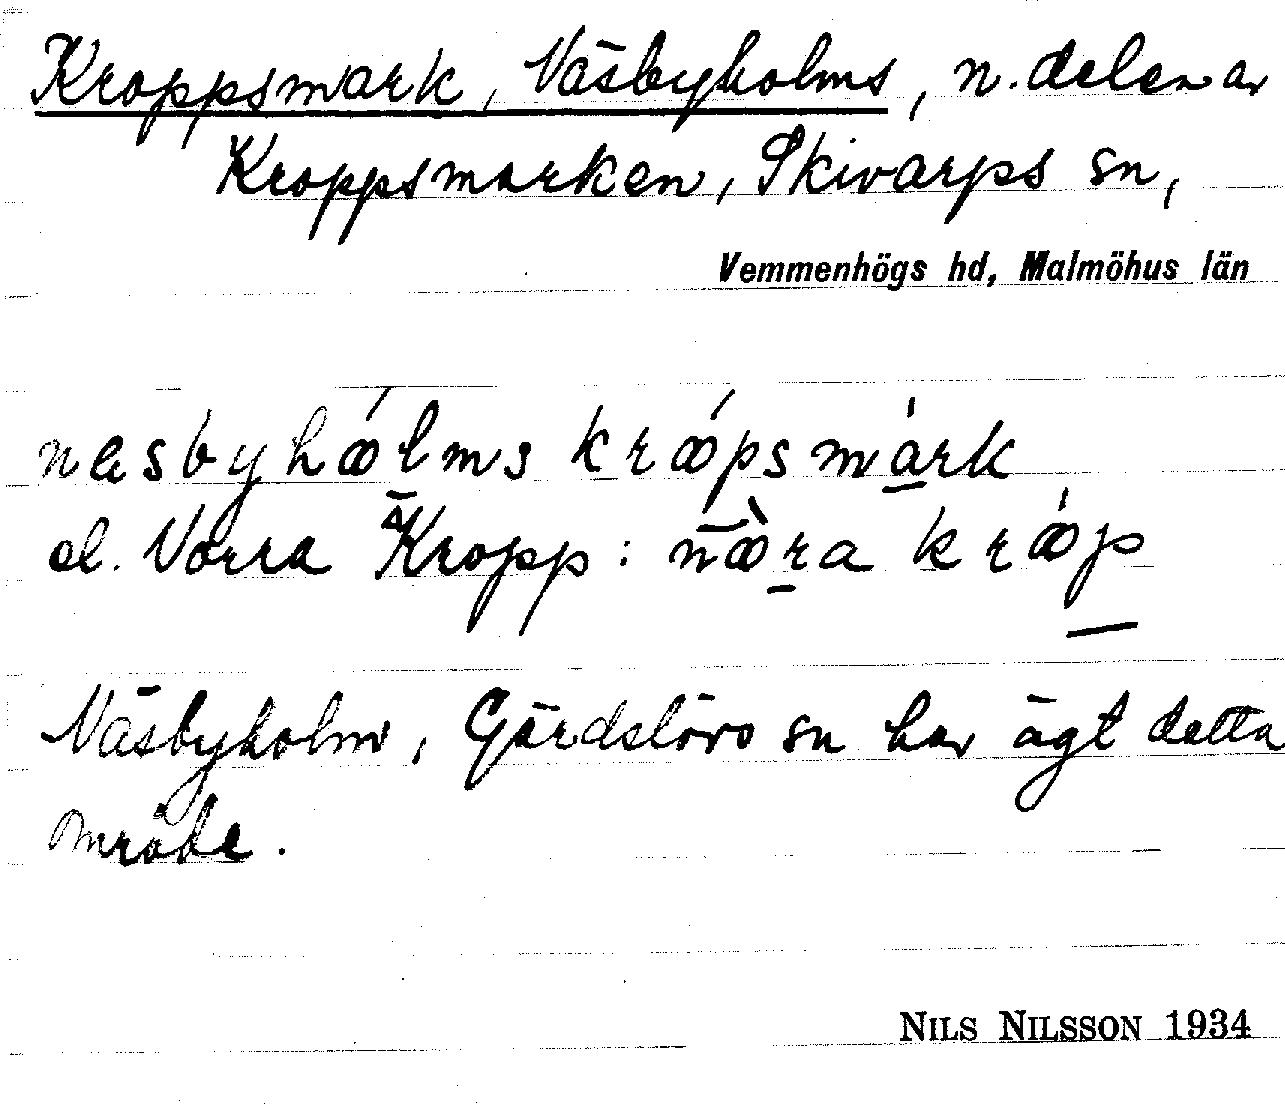 Kroppsmark, Näsbyholms, n. delen av
Kroppsmarken, Skivarps sn,
Vemmenhögs hd, Malmöhus län
næsbyhólms krópsmárk
el. Norra Kropp: nòra króp
Näsbyholm, Gärdslövs sn har ägt detta
område.
NILS NILSSON 1934